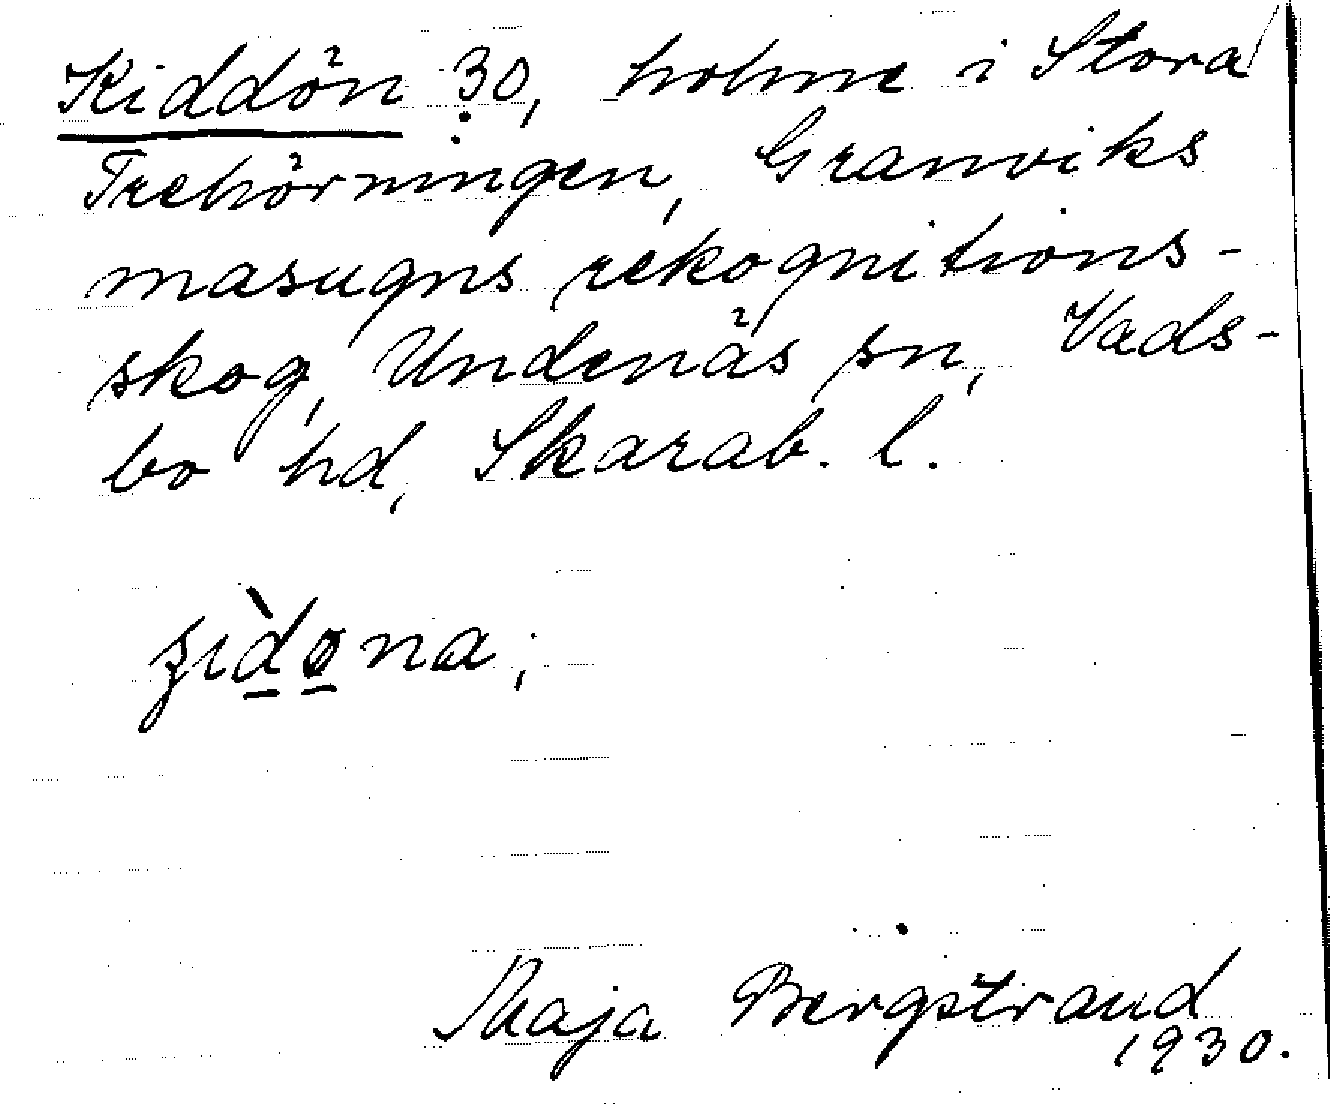 Kiddön 30, holme i Stora
Trehörningen, Granviks
masugns rekognitions-
skog, Undenäs sn, Vads-
bo hd, Skarab. l.
Maja Bergstrand
1930.